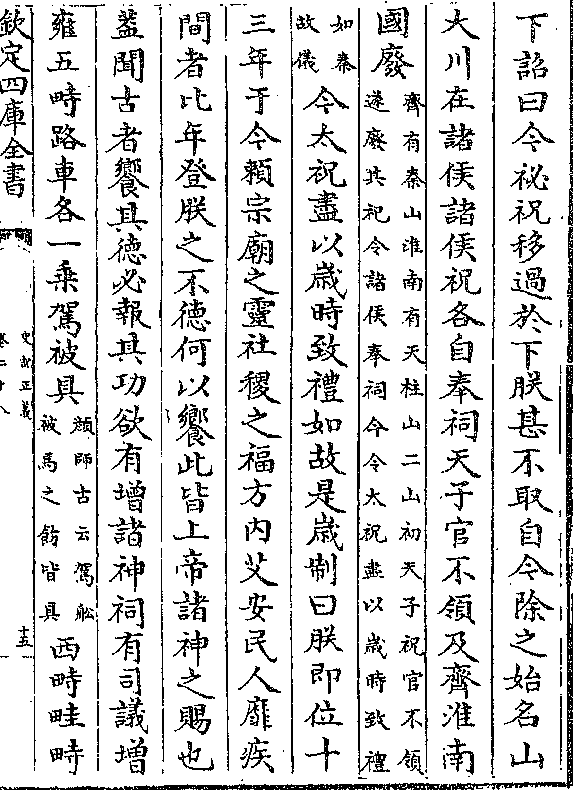 下詔曰今祕祝移過於下朕甚不取自今除之始名山
大川在諸侯諸侯祝各自奉祠天子官不領及齊淮南
國廢齊有泰山淮南有天柱山二山初天子祝官不領
遂廢其祀令諸侯奉祠今令太祝盡以歲時致禮
如秦
故儀
令太祝盡以歲時致禮如故是歲制曰朕即位十
三年于今賴宗廟之靈社稷之福方内艾安民人靡疾
間者比年登朕之不德何以饗此皆上帝諸神之賜也
葢聞古者饗其德必報其功欲有增諸神祠有司議增
雍五畤路車各一乗駕被具
顔師古云駕船
被馬之飾皆具
西畤畦畤
欽定四庫全書
史記正義
卷二十八
十五